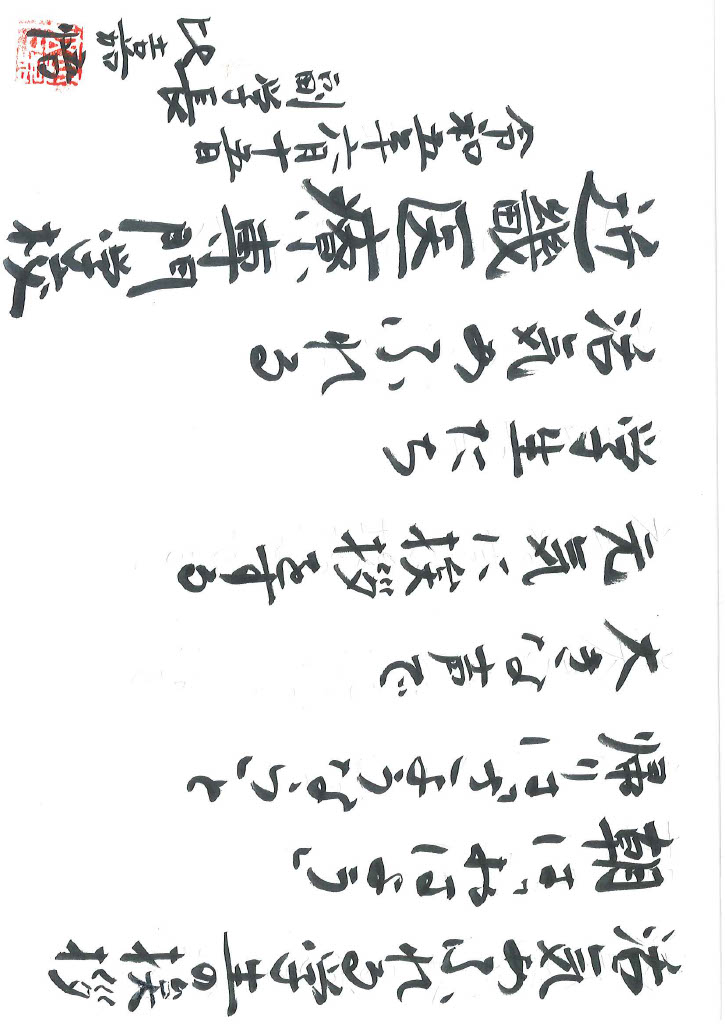 活気あふれる学生の挨拶
朝は「おはよう」
帰りは「さようなら」と
大きな声で
元気に挨拶をする
学生たち
活気あふれる
近畿医療専門学校
令和五年六月十五日
副学長
比嘉悟